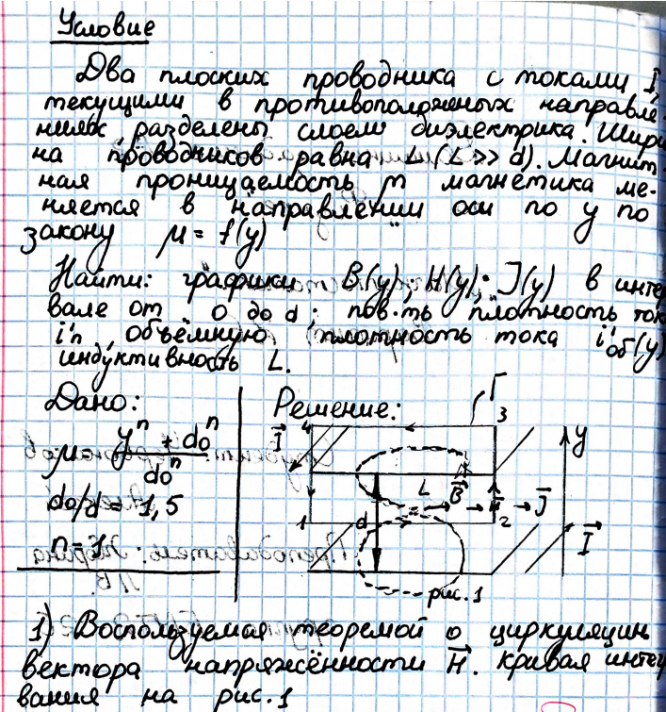 Условие
Два плоских проводника с токами I,
текущими в противоположных направле-
ниях разделены слоем диэлектрика. Шири
на проводников равна L (L >> d). Магнит
ная проницаемость μ магнетика ме-
няется в направлении оси по y по
закону μ = f(y)
Найти: графики B(y), H(y); J(y) в инте
вале от 0 до d; пов-ть плотность ток
i'п, объёмную плотность тока i'об(y)
индуктивность L.
Дано:
μ = (yⁿ + d₀ⁿ)/d₀ⁿ
d₀/d = 1,5
n = 1
Решение:
Г
4
3
I
y
L
B
H
J
1
2
d
I
рис. 1
1) Воспользуемая теоремой о циркуляции
вектора напряжённости H. кривая интег
вания на рис. 1